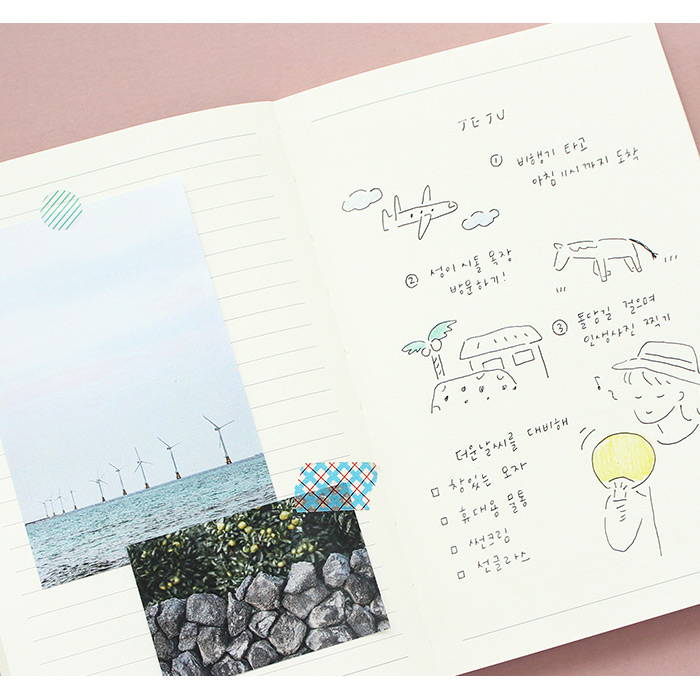 JEJU
① 비행기 타고
아침 11시까지 도착
② 성이시돌 목장
방문하기!
③ 돌담길 걸으며
인생사진 찍기
더운날씨를 대비해
□ 창있는 모자
□ 휴대용 물통
□ 썬크림
□ 선글라스